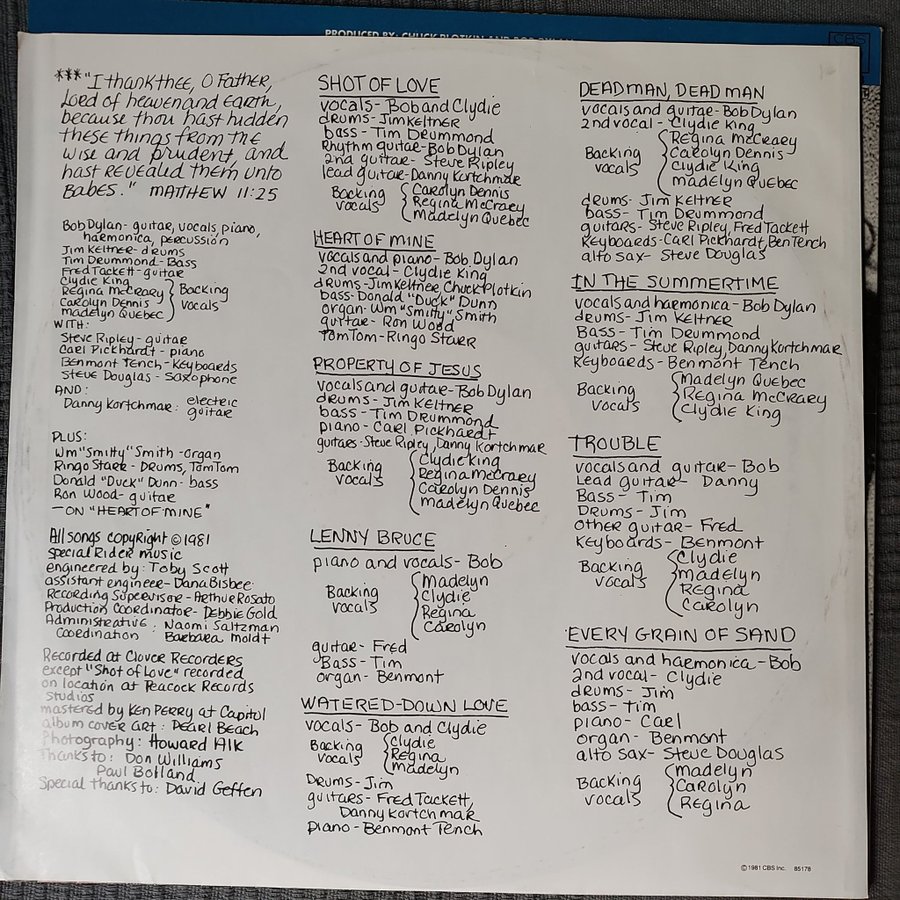 PRODUCED BY: CHUCK PLOTKIN AND BOB DYLAN
CBS
***"I thank thee, O Father,
Lord of heaven and earth,
because thou hast hidden
these things from the
wise and prudent, and
hast revealed them unto
babes." MATTHEW 11:25
Bob Dylan- guitar, vocals, piano,
harmonica, percussion
Jim Keltner- drums
Tim Drummond- Bass
Fred Tackett- guitar
Clydie King
Regina McCrary
Carolyn Dennis
Madelyn Quebec
Backing
vocals
WITH:
Steve Ripley- guitar
Carl Pickhardt- piano
Benmont Tench- Keyboards
Steve Douglas- saxophone
AND:
Danny Kortchmar: electric
guitar
PLUS:
Wm "Smitty" Smith -organ
Ringo Starr- Drums, TomTom
Donald "Duck" Dunn- bass
Ron Wood- guitar
—ON "HEART OF MINE"
All songs copyright ©1981
Special Rider music
engineered by: Toby Scott
assistant engineer- Dana Bisbee
Recording Supervisor- Arthur Rosato
Production Coordinator- Debbie Gold
Administrative : Naomi Saltzman
Coordination Barbara Moldt
Recorded at Clover Recorders
except "Shot of Love" recorded
on location at Peacock Records
Studios
mastered by Ken Perry at Capitol
album cover art: Pearl Beach
Photography: Howard Alk
Thanks to: Don Williams
Paul Bolland
Special thanks to: David Geffen
SHOT OF LOVE
vocals- Bob and Clydie
drums- Jim Keltner
bass- Tim Drummond
Rhythm guitar- Bob Dylan
2nd guitar- Steve Ripley
lead guitar- Danny Kortchmar
Backing
vocals
Carolyn Dennis
Regina McCrary
Madelyn Quebec
HEART OF MINE
vocals and piano- Bob Dylan
2nd vocal- Clydie King
drums- Jim Keltner, Chuck Plotkin
bass- Donald "Duck" Dunn
organ- Wm "Smitty" Smith
guitar- Ron Wood
TomTom- Ringo Starr
PROPERTY OF JESUS
vocals and guitar- Bob Dylan
drums- Jim Keltner
bass- Tim Drummond
piano- Carl Pickhardt
guitars- Steve Ripley, Danny Kortchmar
Backing
vocals
Clydie King
Regina McCrary
Carolyn Dennis
Madelyn Quebec
LENNY BRUCE
piano and vocals- Bob
Backing
vocals
Madelyn
Clydie
Regina
Carolyn
guitar- Fred
Bass- Tim
organ- Benmont
WATERED-DOWN LOVE
vocals- Bob and Clydie
Backing
vocals
Clydie
Regina
Madelyn
Drums- Jim
guitars- Fred Tackett,
Danny Kortchmar
piano- Benmont Tench
DEAD MAN, DEAD MAN
vocals and guitar- Bob Dylan
2nd vocal- Clydie King
Backing
vocals
Regina McCrary
Carolyn Dennis
Clydie King
Madelyn Quebec
drums- Jim Keltner
bass- Tim Drummond
guitars- Steve Ripley, Fred Tackett
Keyboards- Carl Pickhardt, Ben Tench
alto sax- Steve Douglas
IN THE SUMMERTIME
vocals and harmonica- Bob Dylan
drums- Jim Keltner
Bass- Tim Drummond
guitars- Steve Ripley, Danny Kortchmar
Keyboards- Benmont Tench
Backing
vocals
Madelyn Quebec
Regina McCrary
Clydie King
TROUBLE
vocals and guitar- Bob
Lead guitar- Danny
Bass- Tim
Drums- Jim
other guitar- Fred
Keyboards- Benmont
Backing
vocals
Clydie
Madelyn
Regina
Carolyn
EVERY GRAIN OF SAND
vocals and harmonica- Bob
2nd vocal- Clydie
drums- Jim
bass- Tim
piano- Carl
organ- Benmont
alto sax- Steve Douglas
Backing
vocals
Madelyn
Carolyn
Regina
©1981 CBS Inc. 85178